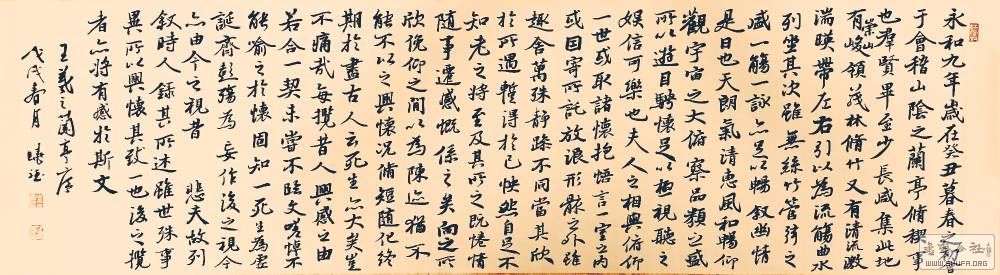 永和九年歲在癸丑暮春之初會
于會稽山陰之蘭亭脩稧事
也羣賢畢至少長咸集此地
有崇山峻領茂林脩竹又有清流激
湍暎帶左右引以為流觴曲水
列坐其次雖無絲竹管弦之
盛一觴一詠亦足以暢敘幽情
是日也天朗氣清惠風和暢仰
觀宇宙之大俯察品類之盛
所以遊目騁懷足以極視聽之
娛信可樂也夫人之相與俯仰
一世或取諸懷抱悟言一室之內
或因寄所託放浪形骸之外雖
趣舍萬殊靜躁不同當其欣
於所遇蹔得於己怏然自足不
知老之將至及其所之既惓情
隨事遷感慨係之矣向之所
欣俛仰之間以為陳迹猶不
能不以之興懷況脩短隨化終
期於盡古人云死生亦大矣豈
不痛哉每攬昔人興感之由
若合一契未嘗不臨文嗟悼不
能喻之於懷固知一死生為虛
誕齊彭殤為妄作後之視今
亦由今之視昔 悲夫故列
敘時人錄其所述雖世殊事
異所以興懷其致一也後之攬
者亦將有感於斯文
王羲之蘭亭序
戊戌春月